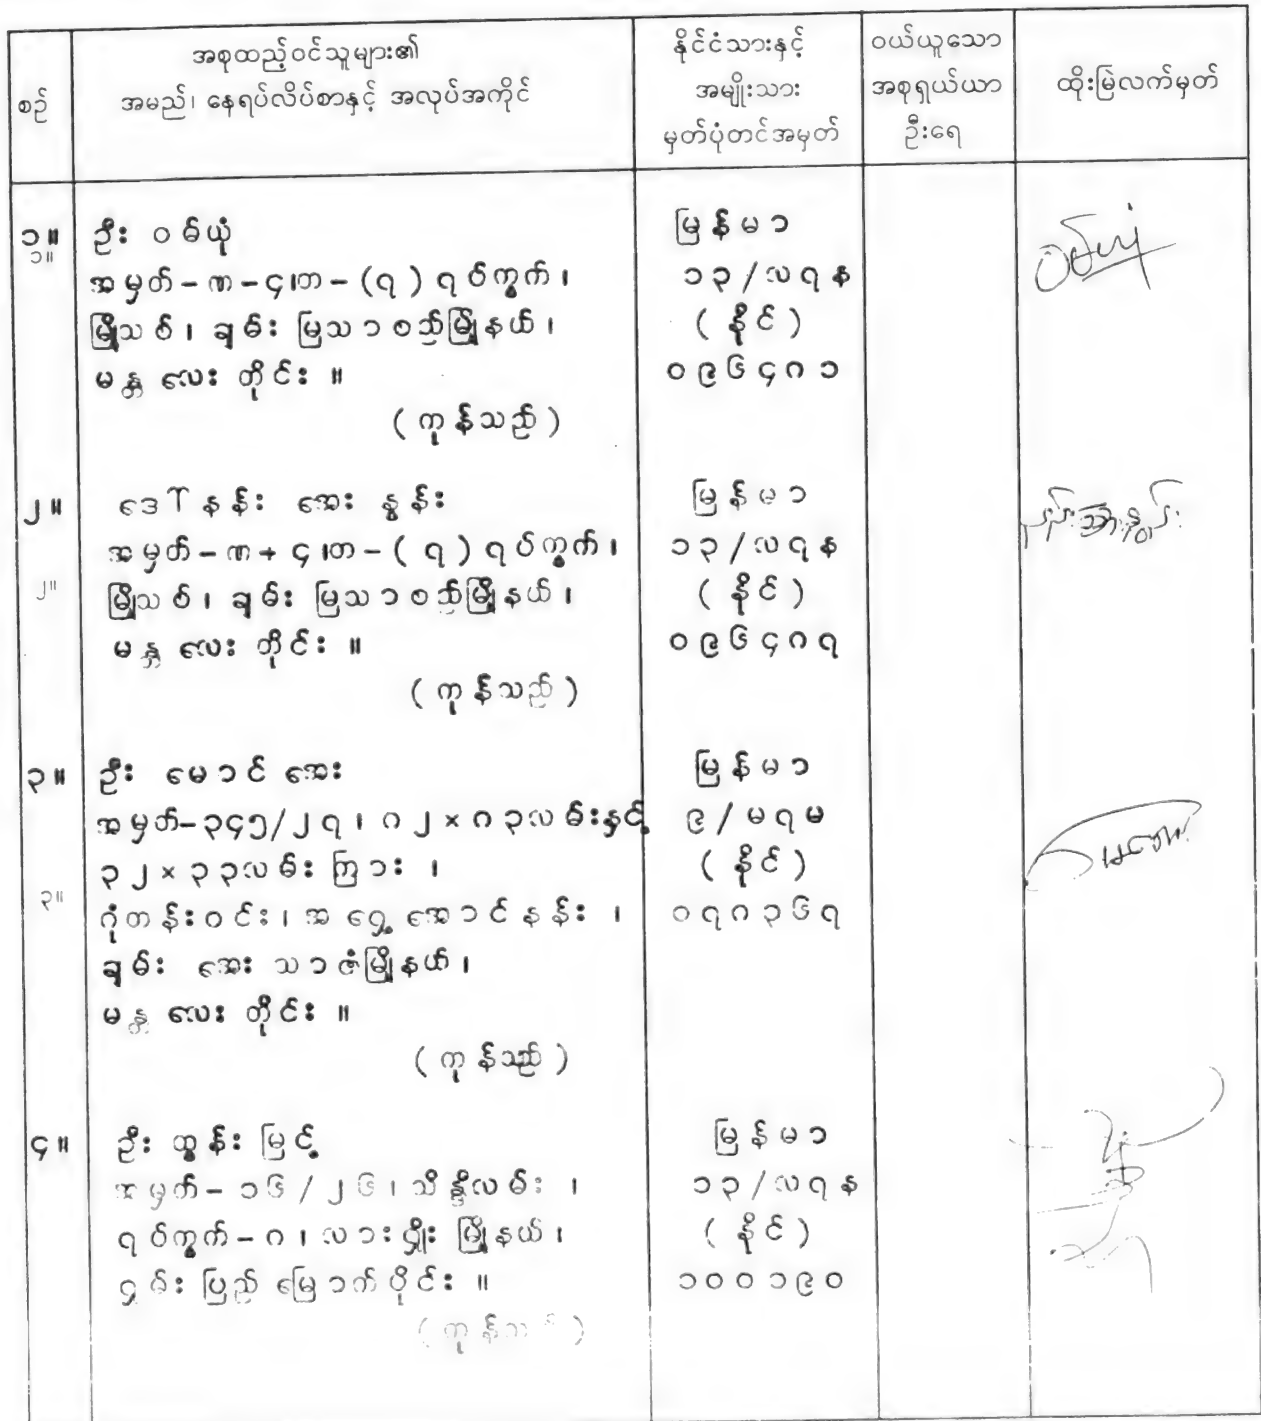 စဉ်
အစုထည့်ဝင်သူများ၏
အမည်၊ နေရပ်လိပ်စာနှင့် အလုပ်အကိုင်
နိုင်ငံသားနှင့်
အမျိုးသား
မှတ်ပုံတင်အမှတ်
ဝယ်ယူသော
အစုရှယ်ယာ
ဦးရေ
ထိုးမြဲလက်မှတ်
၁။
၁။
ဦး ဝမ်ယုံ
အမှတ်-ဏ-၄၊တ-(၇) ရပ်ကွက်၊
မြို့သစ်၊ ချမ်းမြသာစည်မြို့နယ်၊
မန္တလေးတိုင်း။
(ကုန်သည်)
မြန်မာ
၁၃/လရန
(နိုင်)
၀၉၆၄ဂ၁
ဝမ်ယုံ
၂။
၂။
ဒေါ်နန်းအေးနွန်း
အမှတ်-ဏ+၄၊တ-(၇) ရပ်ကွက်၊
မြို့သစ်၊ ချမ်းမြသာစည်မြို့နယ်၊
မန္တလေးတိုင်း။
(ကုန်သည်)
မြန်မာ
၁၃/လရန
(နိုင်)
၀၉၆၄ဂ၇
၃။
၃။
ဦး မောင်အေး
အမှတ်-၃၄၅/၂၇၊ ဂ၂×ဂ၃လမ်းနှင့်
၃၂×၃၃လမ်းကြား၊
ဂုံတန်းဝင်း၊ အရှေ့အောင်နန်း၊
ချမ်းအေးသာဇံမြို့နယ်၊
မန္တလေးတိုင်း။
(ကုန်သည်)
မြန်မာ
၉/မရမ
(နိုင်)
၀၇ဂ၃၆၇
၄။
ဦး ထွန်းမြင့်
အမှတ်-၁၆/၂၆၊ သိန္နီလမ်း၊
ရပ်ကွက်-ဂ၊ လားရှိုးမြို့နယ်၊
ရှမ်းပြည်မြောက်ပိုင်း။
(ကုန်သည်)
မြန်မာ
၁၃/လရန
(နိုင်)
၁၀၀၁၉၀